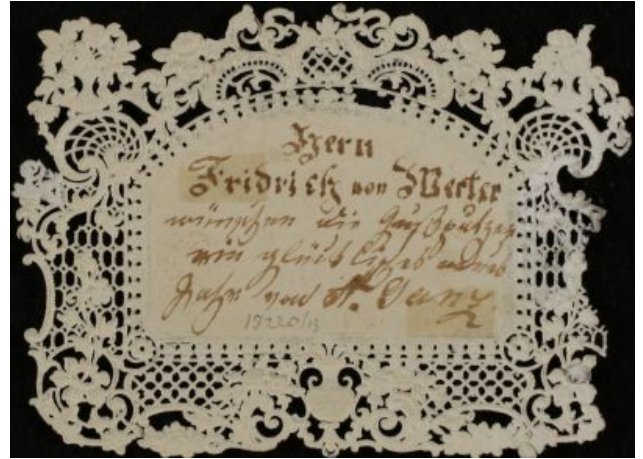 Hern
Fridrich von
wünschen die
ein glückliches neues
Jahr von
17220/13